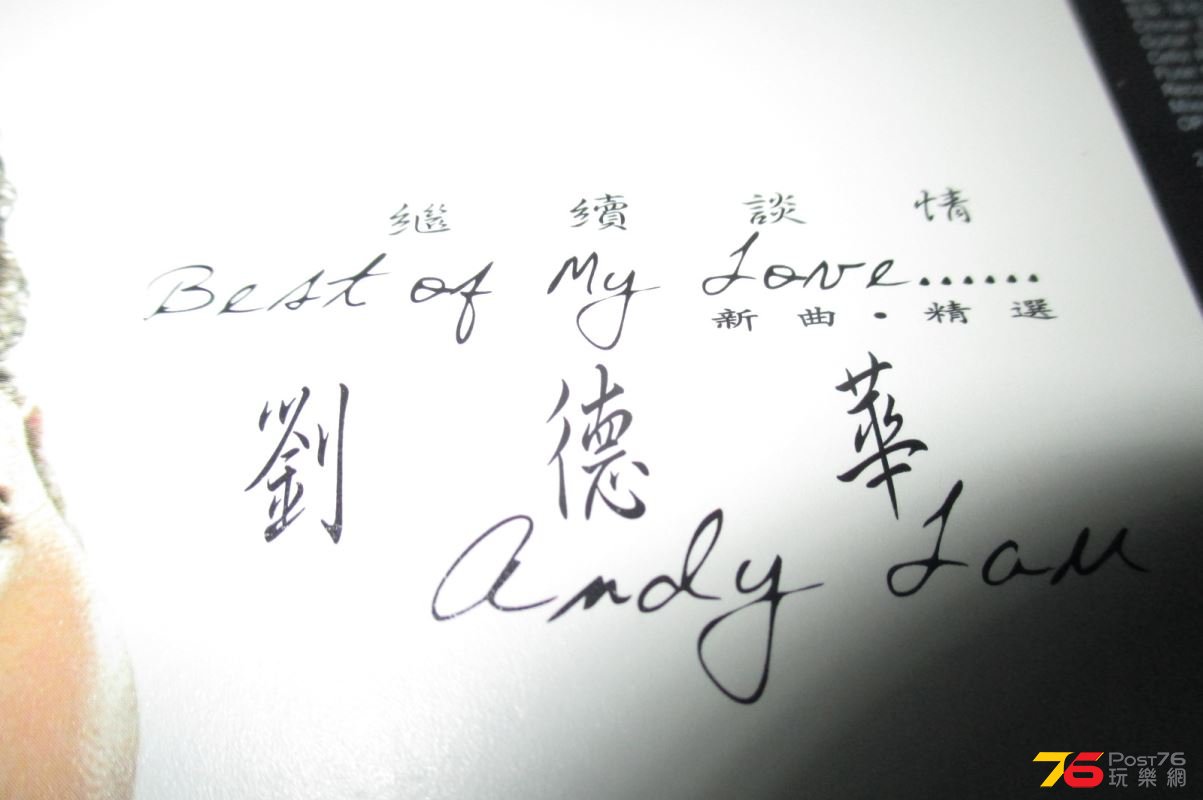 繼續談情
Best of My Love......
新曲・精選
劉德華
Andy Lau
76 POST76
玩樂網